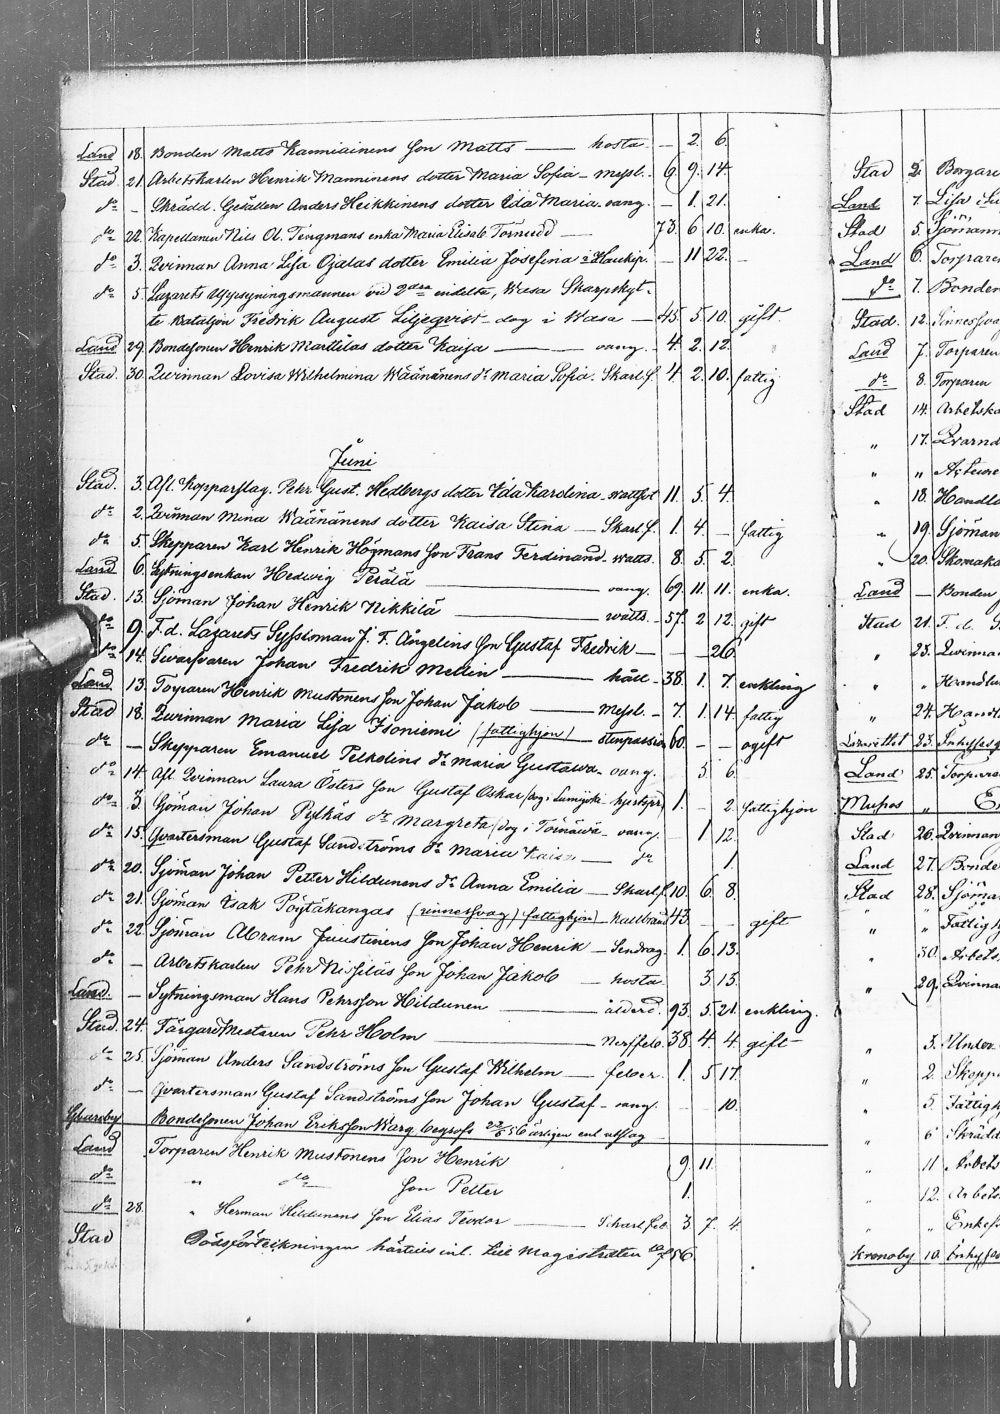 Land 18. Bonden Matts Kanniainens son Matts — hosta. — 2. 6.
Stad. 21. Arbetskarlen Henrik Manninens dotter Maria Sofia – messl. 6. 9. 14.
do – Skrädd. Gesällen Anders Heikkinens dotter Ida Maria. oang. – 1. 21.
do 22. Kapellanen Nils Ol. Tengmans enka Maria Elisab Törnudd — 73. 6. 10. enka.
do 3. Qvinnan Anna Lisa Ojalas dotter Emilia Josefina i Haukip. – 11. 22. –
do 5. Lazarets Uppsyningsmannen vid 2dra indelta, Wasa Skarpskyt-
te Bataljon Fredrik August Liljeqvist – dog i Wasa — 45. 5. 10. gift.
Land 29. Bondesonen Henrik Marttilas dotter Kaisa — oang. – 4. 2. 12.
Stad. 30. Qvinnan Lovisa Wilhelmina Wäänänens dr Maria Sofia. Skarl.f. 4. 2. 10. fattig
Juni
Stad. 3. Afl. Kopparslag. Pehr Gust. Hedbergs dotter Ida Karolina. wattsot 11. 5. 4.
do 2. Qvinnan Mina Wäänänens dotter Kaisa Stina — Skarl.f. 1. 4. – fattig
do 5. Skepparen Karl Henrik Högmans son Frans Ferdinand. watts. 8. 5. 2.
Land 6. Sytningsenkan Hedwig Perälä — oang. 69. 11. 11. enka.
Stad. 13. Sjöman Johan Henrik Nikkilä — watts. 57. 2 12. gift
do 9. F.d. Lazarets Syssloman J. F. Ångelins son Gustaf Fredrik — – – 26
do 14. Swarfvaren Johan Fredrik Mellin — håll – 38. 1. 7. enkling
Land 13. Torparen Henrik Mustonens son Johan Jakob — Messl. – 7. 1. 14 fattig
Stad 18. Qvinnan Maria Lisa Isoniemi (fattighjon) stenpassion 60. – – ogift
do – Skepparen Emanuel Pelkolins dr Maria Gustawa – oang. 3. 6.
do 14. Afl Qvinnan Laura Östers son Gustaf Oskar (dog i Lumijoki 1. – 2. fattighjon
do 3. Sjöman Johan Pylkäs dr Margreta (dog i Torneå – oang. 1 12.
do 15. Qvartersman Gustaf Sandströms dr Maria Kaisa — do 1.
do 20. Sjöman Johan Petter Hildunens dr Anna Emilia — Skarl.f. 10. 6. 8.
do 21. Sjöman Isak Pöytäkangas (sinnessvag) (fattighjon) – Kallbrand 43. – – gift
do 22. Sjöman Abram Juustinens son Johan Henrik — Sendrag. 1. 6. 13.
do – Arbetskarlen Pehr Nissiläs son Johan Jakob – hosta 3 13.
Land. – Sytningsman Hans Pehrsson Hildunen — ålderd. 93. 5. 21. enkling.
Stad. 24. Färgare Mestaren Pehr Holm — Nerffeb. 38. 4. 4 gift –
do 25. Sjöman Anders Sandströms son Gustaf Wilhelm — feber. 1. 5 17.
do – Qvartersman Gustaf Sandströms son Johan Gustaf – oang. 10.
Bondesonen Johan Eriksson Warg begrofs 22/6 56 ärligen enl utslag
Land Torparen Henrik Mustonens son Henrik 9. 11.
do " do son Petter 1.
do 28. " Herman Hildunens son Elias Teodor — Scharl.feb. 3. 7. 4
Stad Dödsförtekningen härtills inl. till Magistraten 56.
Stad 2. Borgare
Land 7. Lisa i
Stad 5. Sjömann
Land 6. Torparen
do 7. Bonden
Stad. 12. Sinnessva
Land 7. Torparen
do 8. Torparen
Stad 14. Arbetska
" 17. Qvarnd
" "
" 18. Handla
" 19. Sjöman
20. Skomaka
Land – Bonden
Stad 21. F. d.
" 23. Qvinna
" " Handlan
" 24. Handl
Lazarettet 23. Inhysesg
Land 25. Torpare
Muhos "
Stad 26. Qvinnan
Land 27. Bonde
Stad 28. Sjöma
" " Fattigh
" 30. Arbets
" 29. Qvinna
" 3. Under
" 2. Skeppa
" 5. Fattigh
" 6 Skrädd
" 11. Arbets
" 12. Arbets
" " Enkef
Kronoby 10. Inhyses